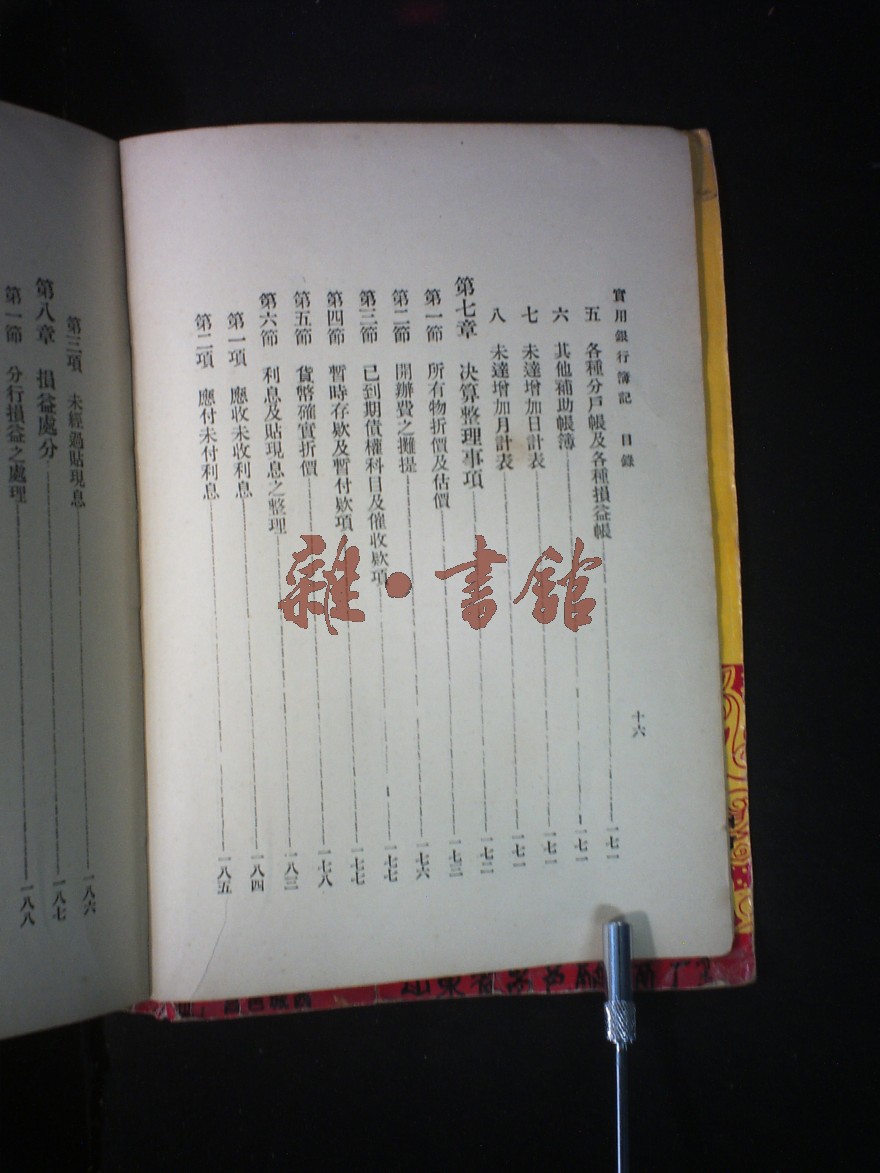 實用銀行簿記 目錄 十六
五 各種分戶帳及各種損益帳 一七一
六 其他補助帳簿 一七一
七 未達增加日計表 一七一
八 未達增加月計表 一七一
第七章 決算整理事項 一七二
第一節 所有物折價及估價 一七三
第二節 開辦費之攤提 一七六
第三節 已到期債權科目及催收欵項 一七七
第四節 暫時存欵及暫付欵項 一七七
第五節 貨幣確實折價 一七八
第六節 利息及貼現息之整理 一八三
第一項 應收未收利息 一八四
第二項 應付未付利息 一八五
第三項 未經過貼現息 一八六
第八章 損益處分 一八七
第一節 分行損益之處理 一八八
雜·書館